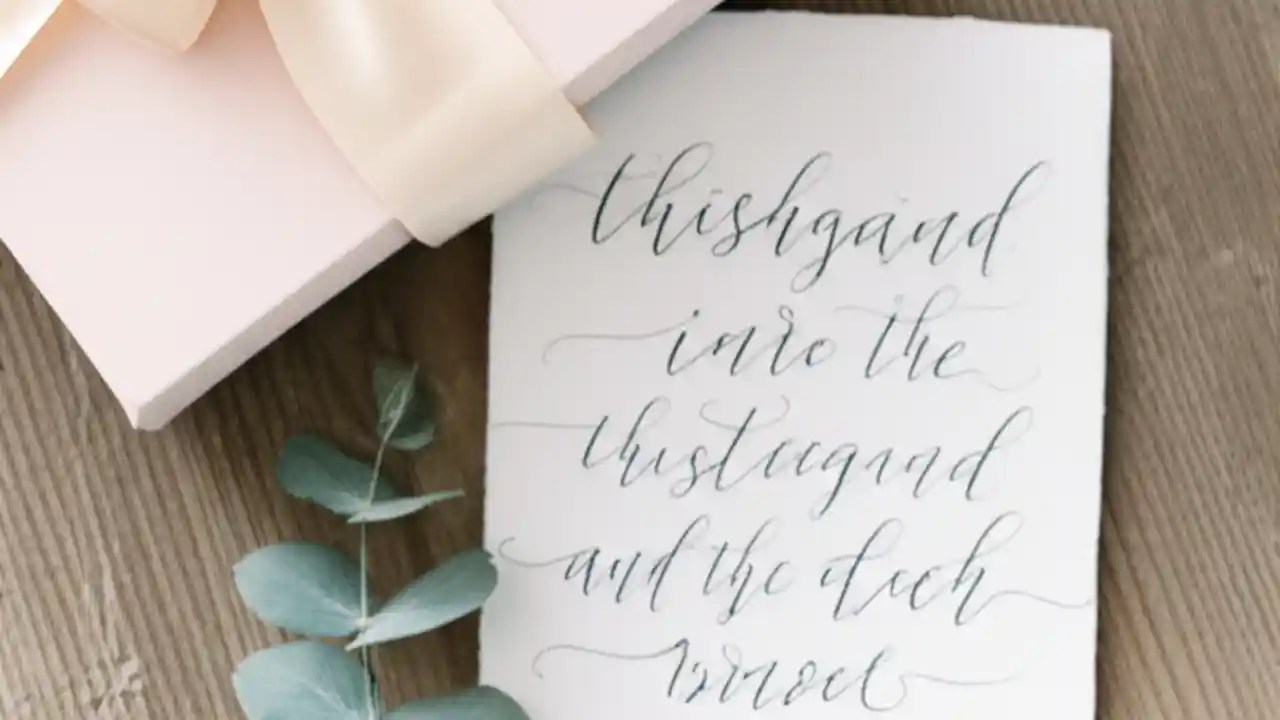 thishgand
into the
thisteegand
and the dech